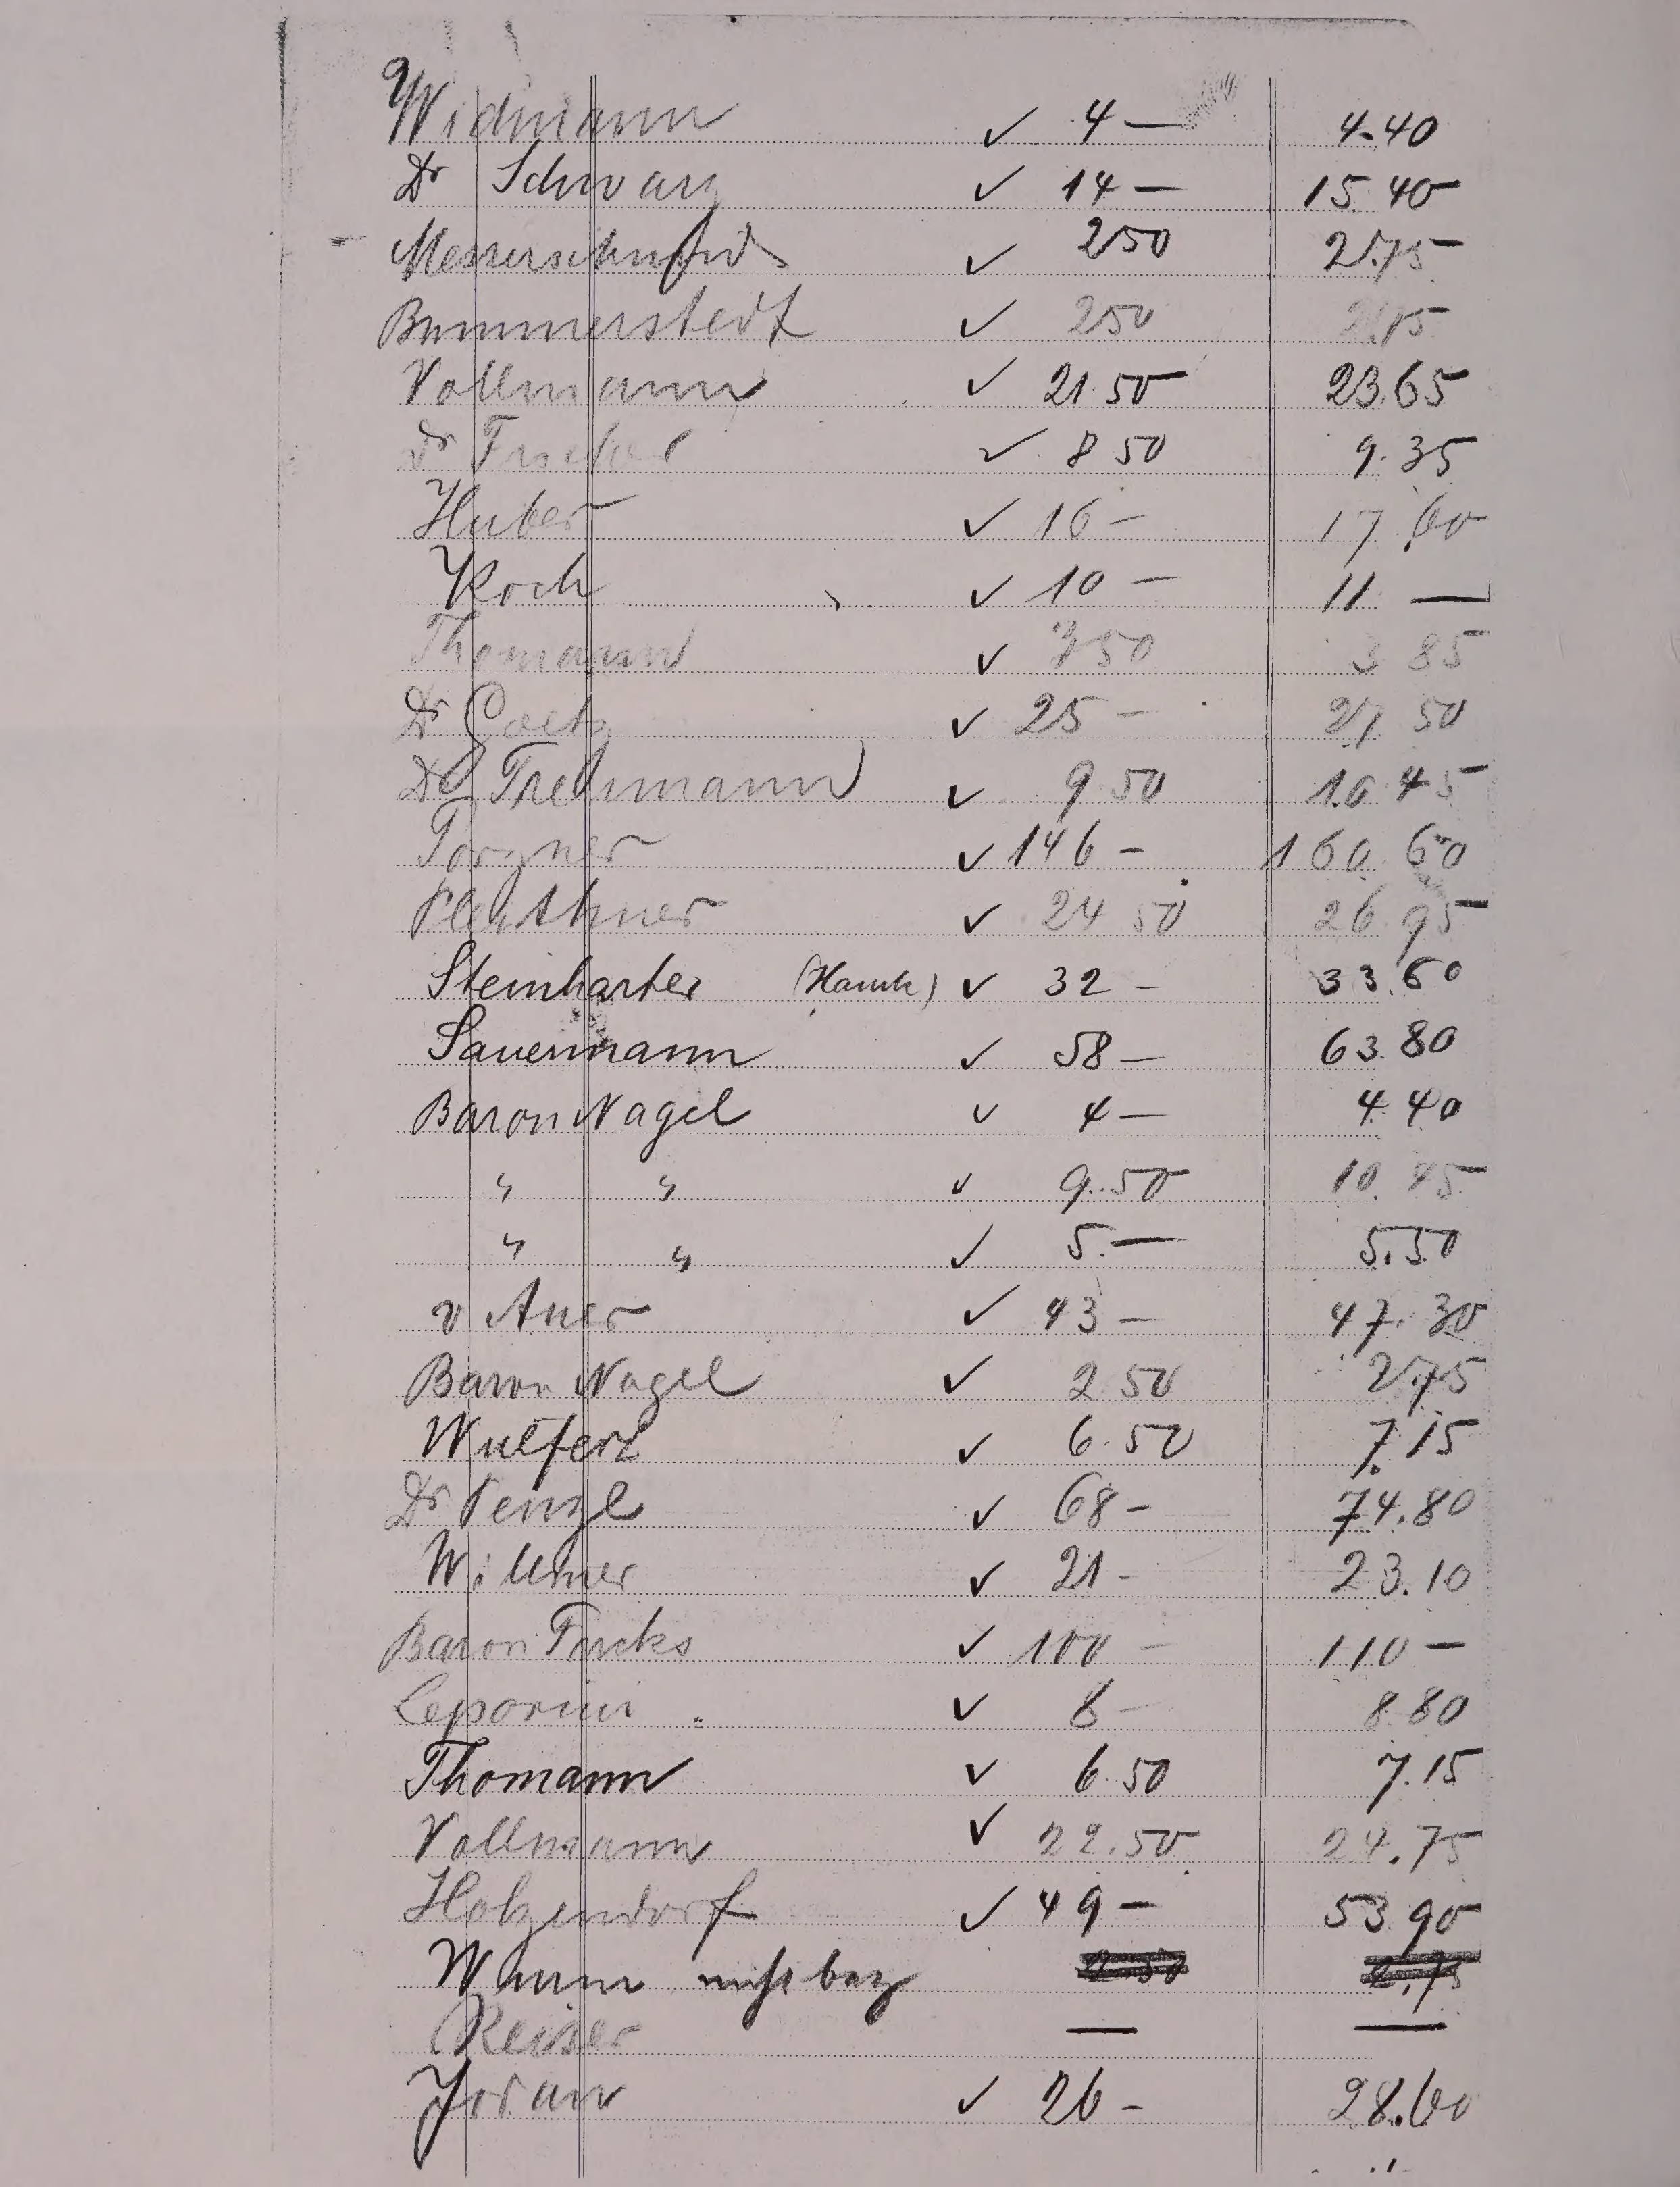 Widmann ✓ 4 — 4.40
Dr Schwarz ✓ 14 — 15.40
Messerschmid ✓ 2 50 2.75
Bummerstedt ✓ 2 50 2.75
Vollmann ✓ 21.50 23.65
Dr ✓ 8 50 9.35
Huber ✓ 16 — 17.60
Koch ✓ 10 — 11 —
Thomann ✓ 3 50 3 85
Dr Goetz ✓ 25 — 27 50
Dr ✓ 9 50 10.45
✓ 146 — 160.60
✓ 24 50 26.95
Steinharter (Hauck) ✓ 32 — 33.60
Sauermann ✓ 58 — 63.80
Baron Nagel ✓ 4 — 4.40
" " ✓ 9.50 10.45
" " ✓ 5.— 5.50
v Auer ✓ 43 — 47.30
Baron Nagel ✓ 2 50 2.75
Wulfert ✓ 6.50 7.15
Dr Penzl ✓ 68 — 74.80
Willmer ✓ 21 - 23.10
Baron ✓ 100 — 110 —
Leporini ✓ 8 — 8.80
Thomann ✓ 6.50 7.15
Vollmann ✓ 22.50 24.75
Holzendorf ✓ 49 — 53.90
nicht bez 2.50 2.75
Reiser — —
Jordan ✓ 26 — 28.60